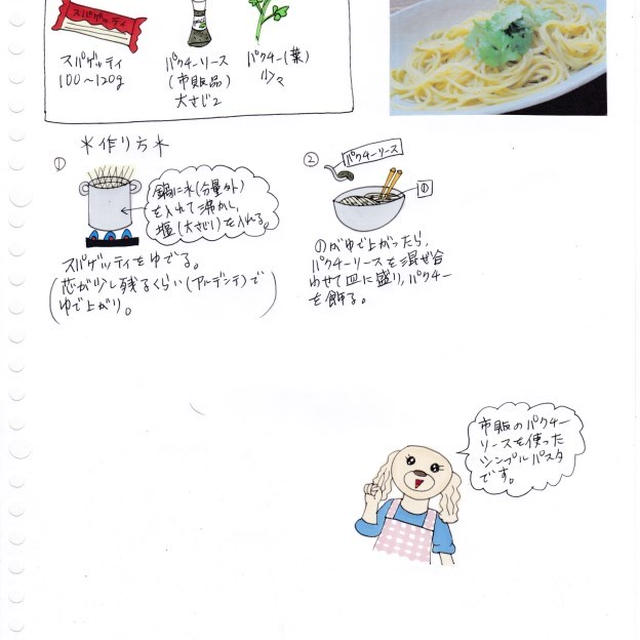 スパゲッティ
スパゲッティ
100〜120g
パクチーソース
(市販品)
大さじ2
パクチー(葉)
少々
*作り方*
①
鍋に水(分量外)
を入れて沸かし、
塩(大さじ1)を入れる。
スパゲッティをゆでる。
(芯が少し残るくらい(アルデンテ)で
ゆで上がり。)
②
パクチーソース
①
①がゆで上がったら、
パクチーソースを混ぜ合
わせて皿に盛り、パクチー
を飾る。
市販のパクチー
ソースを使った
シンプルパスタ
です。